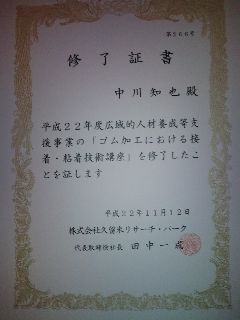 第266号
修了証書
中川知也殿
平成22年度広域的人材養成等支
援事業の「ゴム加工における接
着・粘着技術講座」を修了したこ
とを証します
平成22年11月12日
株式会社久留米リサーチ・パーク
代表取締役社長 田中一成